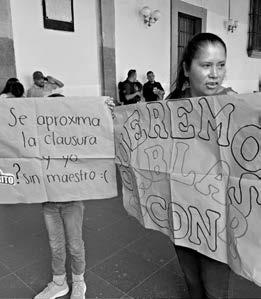 Se aproxima
la clausura
y yo
? sin maestro :(
EREMO
BLA
CON